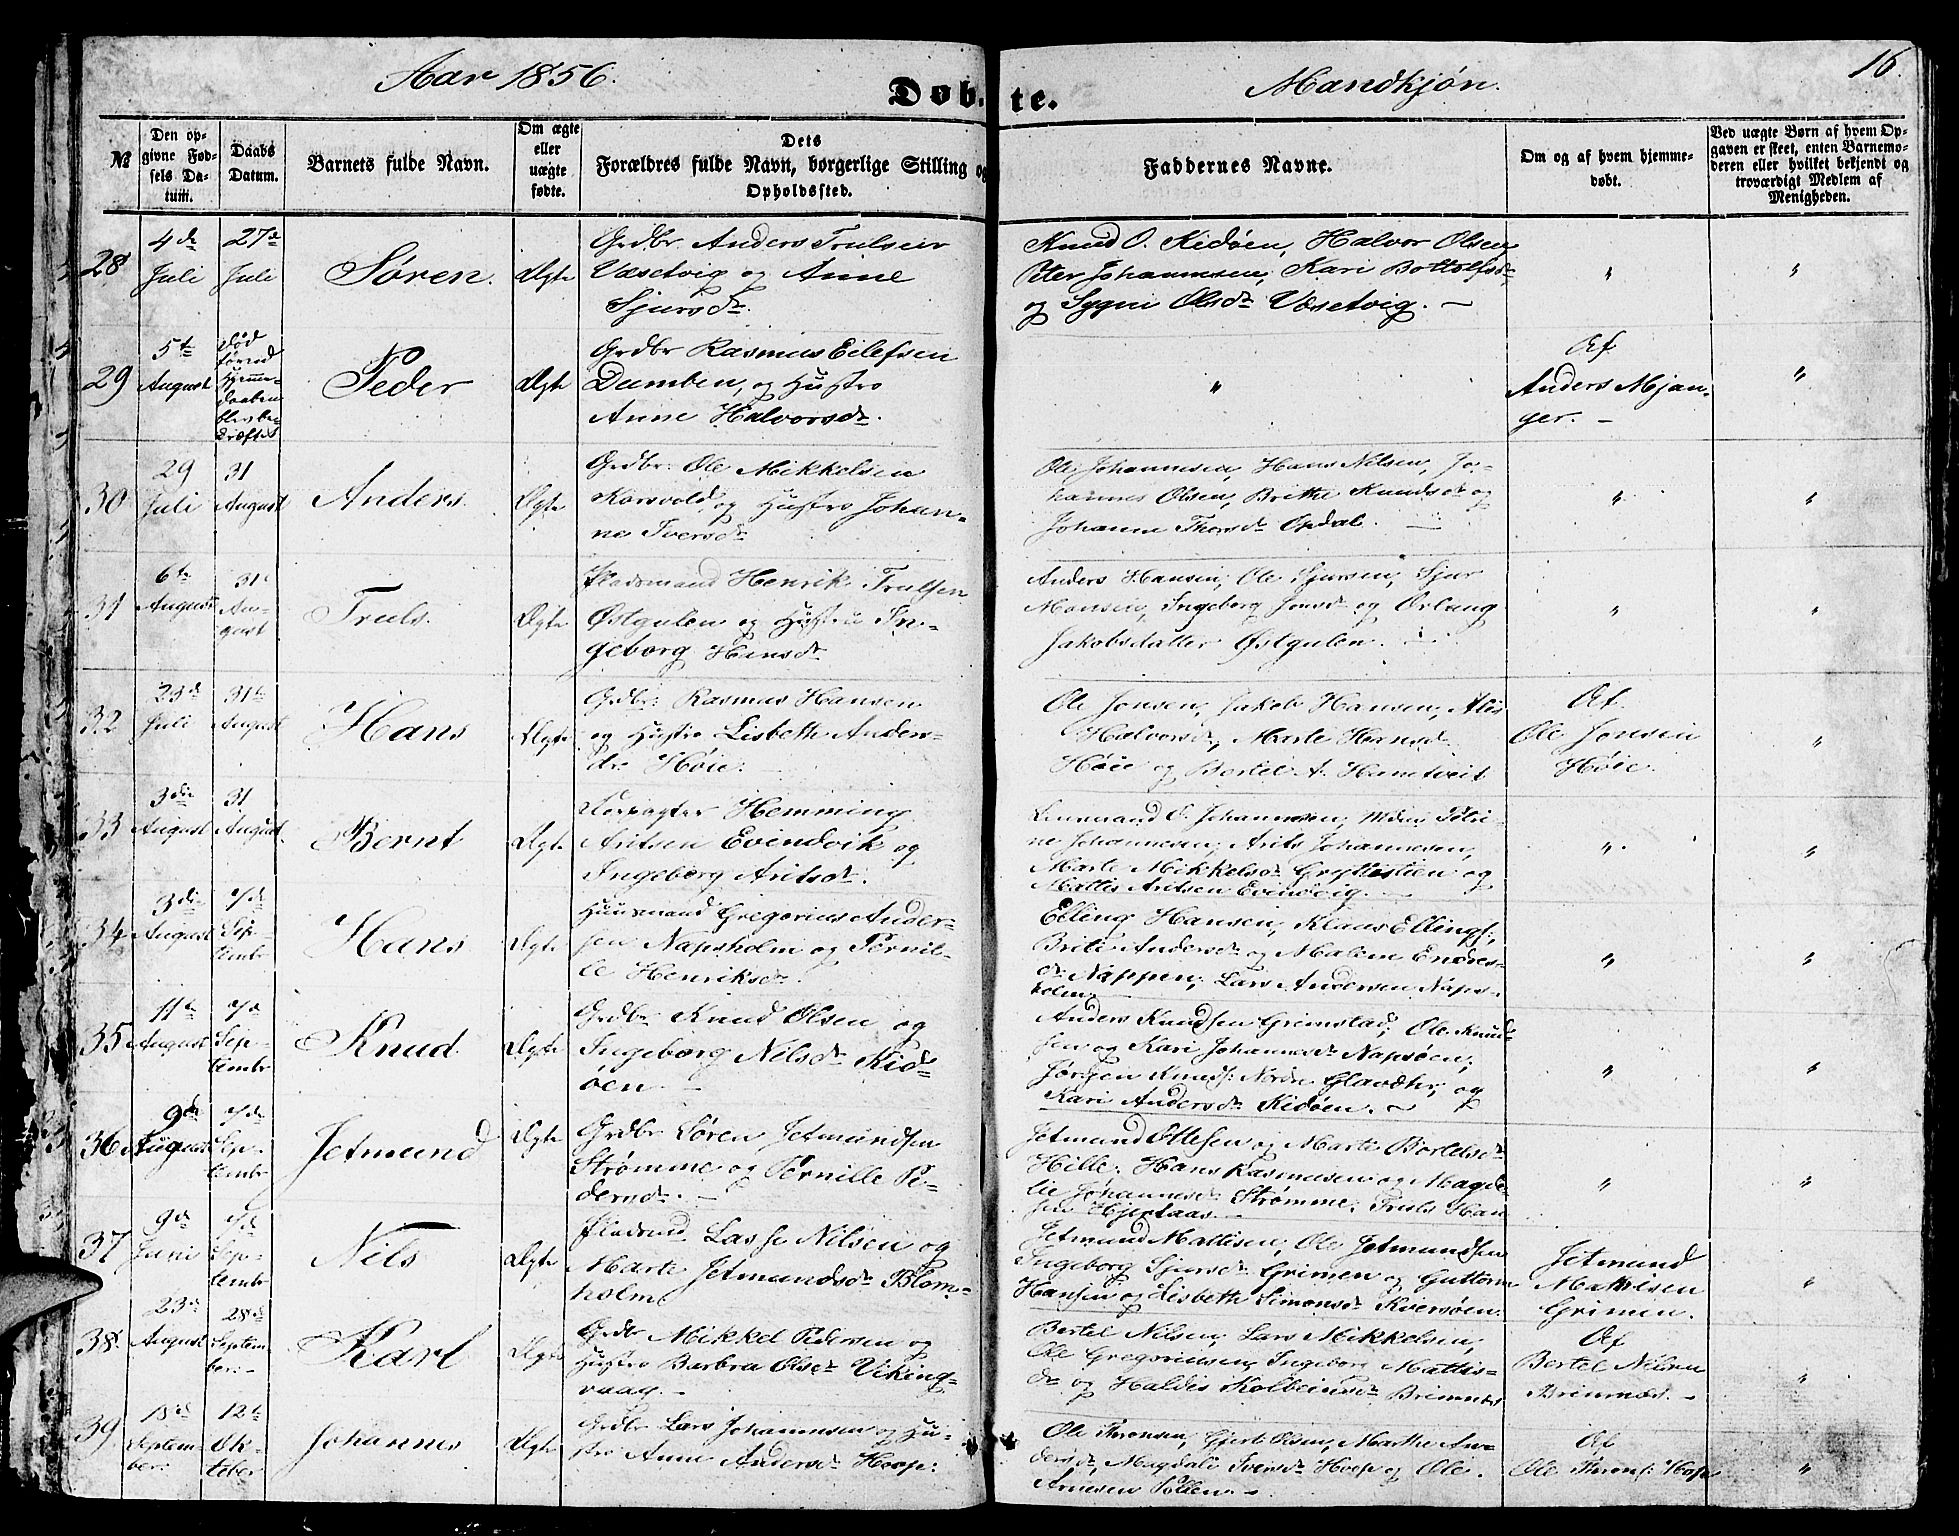 Aar 1856.
Døbte.
Mandkjøn.
16.
№
Den opgivne Fødsels Datum.
Daabs Datum.
Barnets fulde Navn.
Om ægte eller uægte fødte.
Dets Forældres fulde Navn, borgerlige Stilling og Opholdssted.
Faddernes Navne.
Om og af hvem hjemmedøbt.
Ved uægte Børn af hvem Opgaven er skeet, enten Barnemoderen eller hvilket bekjendt og troværdigt Medlem af Menigheden.
28
4de Juli
27de Juli
Søren.
Ægte
Grdbr. Anders Trulsen
Væsetvig og Anne
Sjursdr.
Knud O. Kidøen, Halvor Olsen,
Peter Johannesen, Kari Bottolfsdr,
og Sygni Olsdr Væsetvig. —
"
"
29
5te August
Død førend Hjemmedaaben blev bekræftet
Peder
Ægte
Grdbr Rasmus Eilefsen
Dumben, og Hustro
Anne Halvorsdr.
"
Af
Anders Mjan-
ger. —
"
30
29 Juli
31 August
Anders.
Ægte
Grdbr: Ole Mikkelsen
Korsvold, og Hustro Johan-
ne Iversdr
Ole Johannesen, Hans Nilsen, Jo-
hannes Olsen, Brithe Knudsdr og
Johanne Thorsdr Opdal. —
"
"
31
6te August
31te August
Truls.
Ægte
Pladsmand Henrik Trulsen
Østgulen og Hustru In-
geborg Hansdr
Anders Hansen, Ole Sjursen, Sjur
Monsen, Ingeborg Jonsdr og Orlaug
Jakobsdatter Østgulen.
"
"
32
23de Juli
31te August
Hans
Ægte
Grdbr: Rasmus Hansen
og Hustro Lisbeth Anders-
dr Høie.
Ole Jonsen, Jakob Hansen, Alis
Halvorsdr, Marte Hansdr
Høie og Bertel A. Hantveit
Af.
Ole Jonsen
Høie.
"
33
3die August
31 August.
Bernt
Ægte
Forpagter Hemming
Aritsen Evindvik og
Ingeborg Aritsdr.
Lensmand O. Johannesen, Petri-
ne Johannesen, Arits Johannesen,
Marte Mikkelsdr Gryttestien og
Mattis Aritsen Evindvig. —
"
"
34
3die August
7de September
Hans
Ægte
Huusmand Gregorius Ander-
sen Napsholm og Pernil-
le Henriksdr.
Elling Hansen, Klaus Ellings:,
Brite Andersdr og Malene Endres-
dr Nappen, Lars Andersen Naps-
holm.
"
"
35
11te August
7de September
Knud
Ægte
Grdbr Knud Olsen og
Ingeborg Nilsdr Kid-
øen. —
Anders Knudsen Grimstad, Ole Knud-
sen og Kari Johannesdr Napsøen,
Jørgen Knuds: Nordre Glavdter, og
Kari Andersdr Kidøen. —
"
"
36
9de August
7de September
Jetmund
Ægte
Grdbr Søren Jetmundsen
Strømme og Pernille Pe-
dersdr. —
Jetmund Ottesen og Marte Bertelsdr
Hille, Hans Rasmusen og Magde-
lie Johannesdr Strømme, Truls Han-
sen Hjertaas. —
"
"
37
9de Juni
7de September
Nils
Ægte
Pladsmd. Lasse Nilsen og
Marte Jetmundsdr Blom-
holm
Jetmund Mattisen, Ole Jetmundsen
Ingeborg Sjursdr Grimen og Guttorm
Hansen og Lisbeth Simonsdr Kversøen.
Jetmund
Mathisen
Grimen.
"
38.
23de August
28de September:
Karl
Ægte
Grdbr Mikkel Pedersen og
Hustro Barbra Olsdr Viking-
vaag. —
Bertel Nilsen, Lars Mikkelsen,
Ole Gregoriusen, Ingeborg Mattis-
dr og Haldis Kolbeinsdr Brimnæs
Af
Bertel Nilsen
Brimnæs. —
"
39
18de September:
12te Oktober
Johannes
Ægte
Grdbr Lars Johannesen og Hu-
stro Anne Andersdr Hoop.
Ole Thronsen, Gjert Olsen, Marthe An-
dersdr, Magdali Iversdr Hoop og Ole
Arnesen Pollen. —
Af
Ole Throns: Hop
"